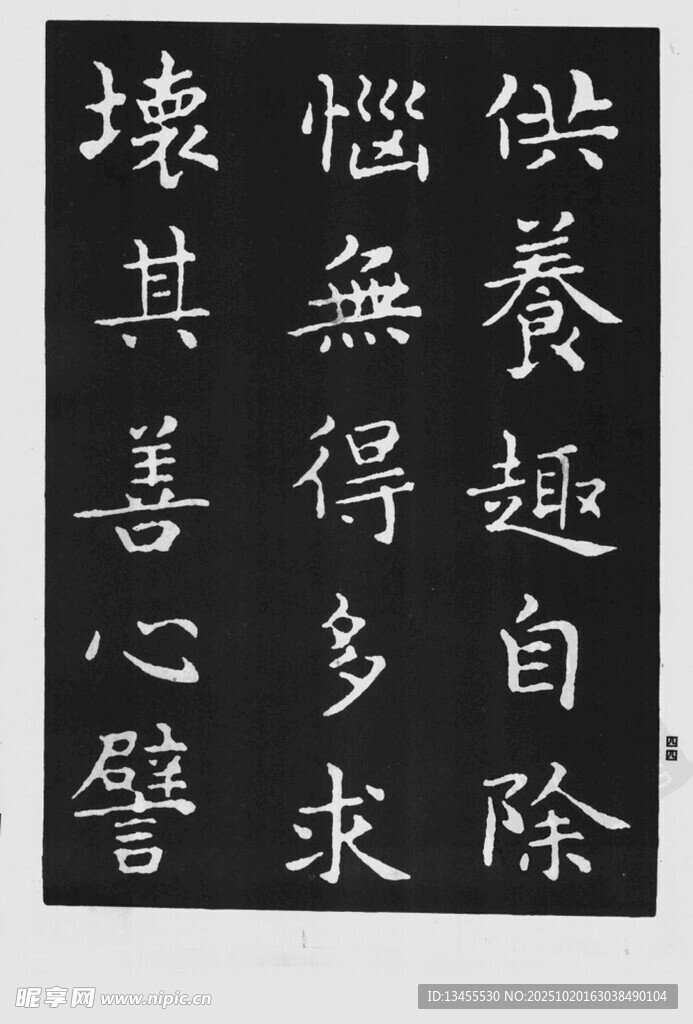 供養趣自除
惱無得多求
壞其善心譬
四四
昵享网 www.nipic.cn
ID:13455530 NO:20251020163038490104